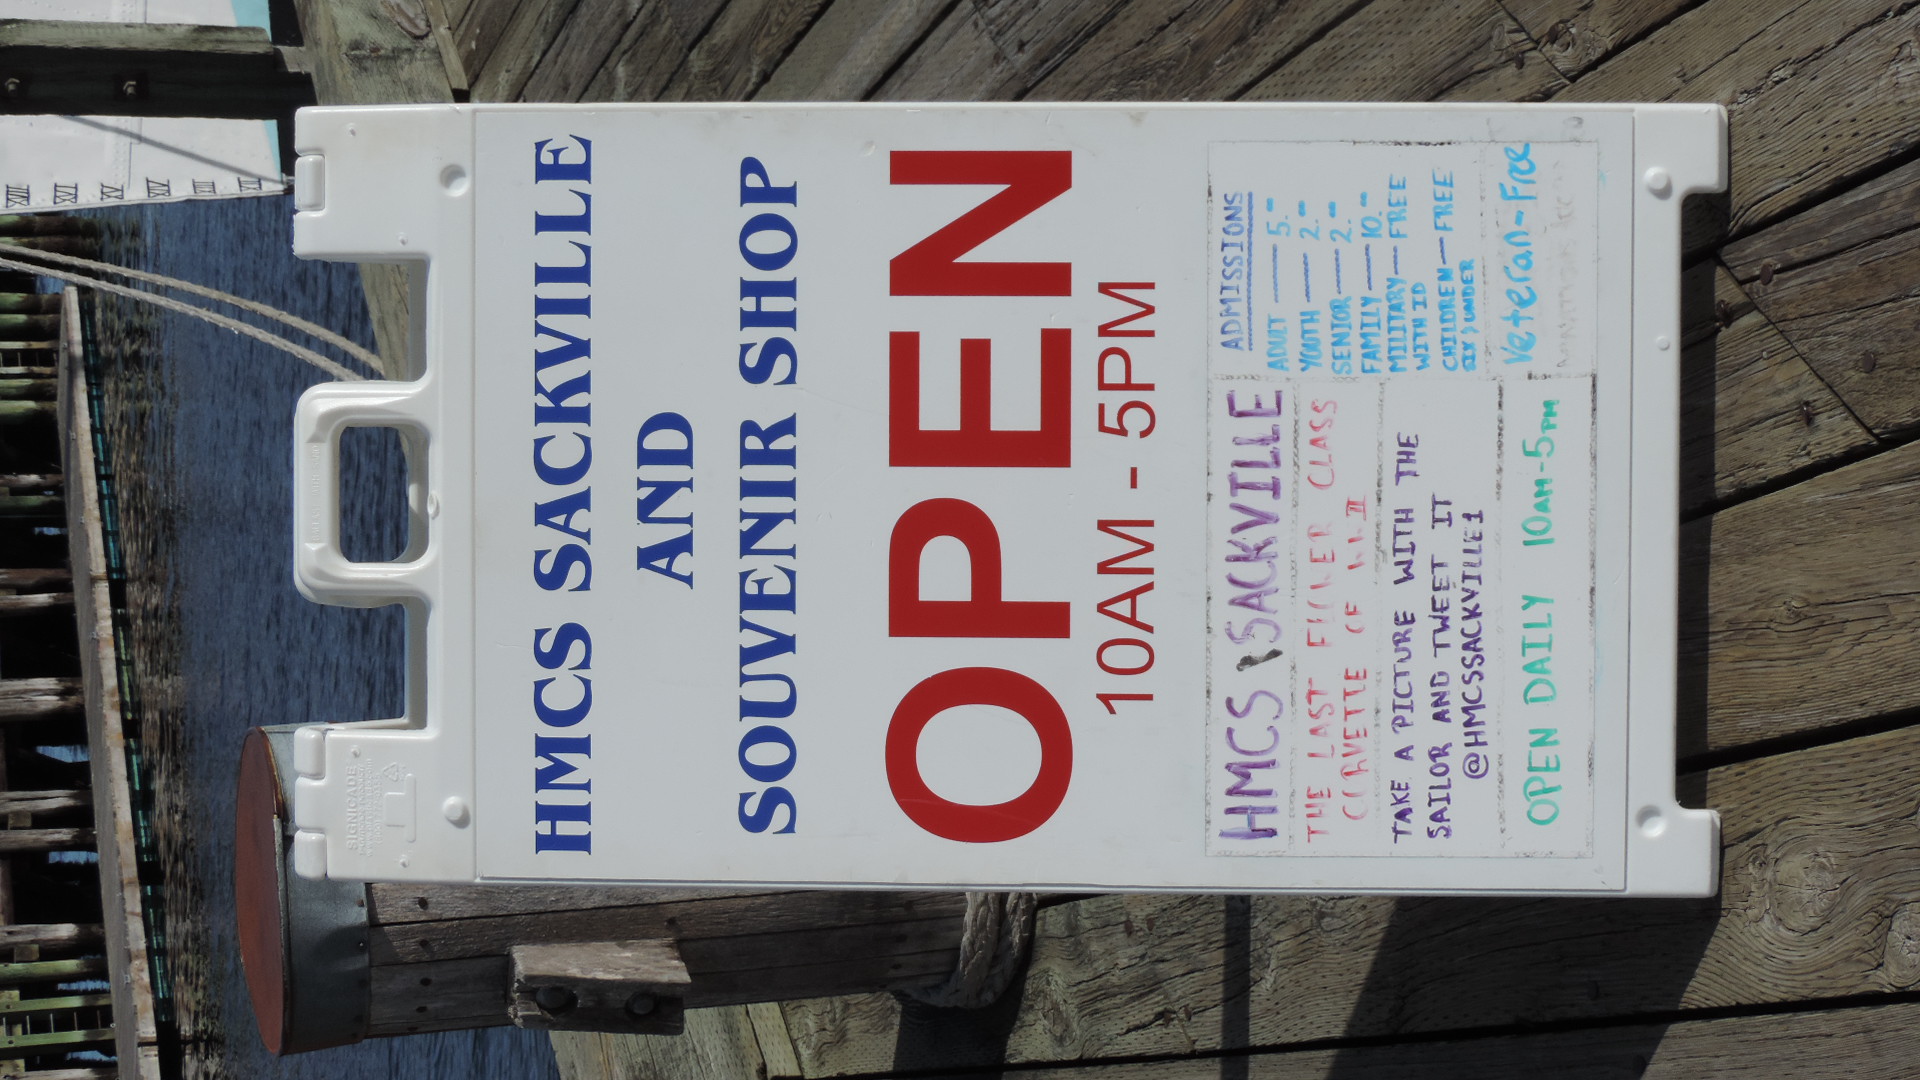 HMCS SACKVILLE
AND
SOUVENIR SHOP
OPEN
10AM - 5PM
HMCS SACKVILLE
THE LAST FLOWER CLASS
CORVETTE OF WWII
TAKE A PICTURE WITH THE
SAILOR AND TWEET IT
@HMCSSACKVILLE1
OPEN DAILY 10AM-5PM
ADMISSIONS
ADULT — 5.-
YOUTH — 2.-
SENIOR — 2.-
FAMILY — 10.-
MILITARY — FREE
WITH ID
CHILDREN — FREE
UNDER
Veteran-Free
SIGNICADE
XIII
XII
XI